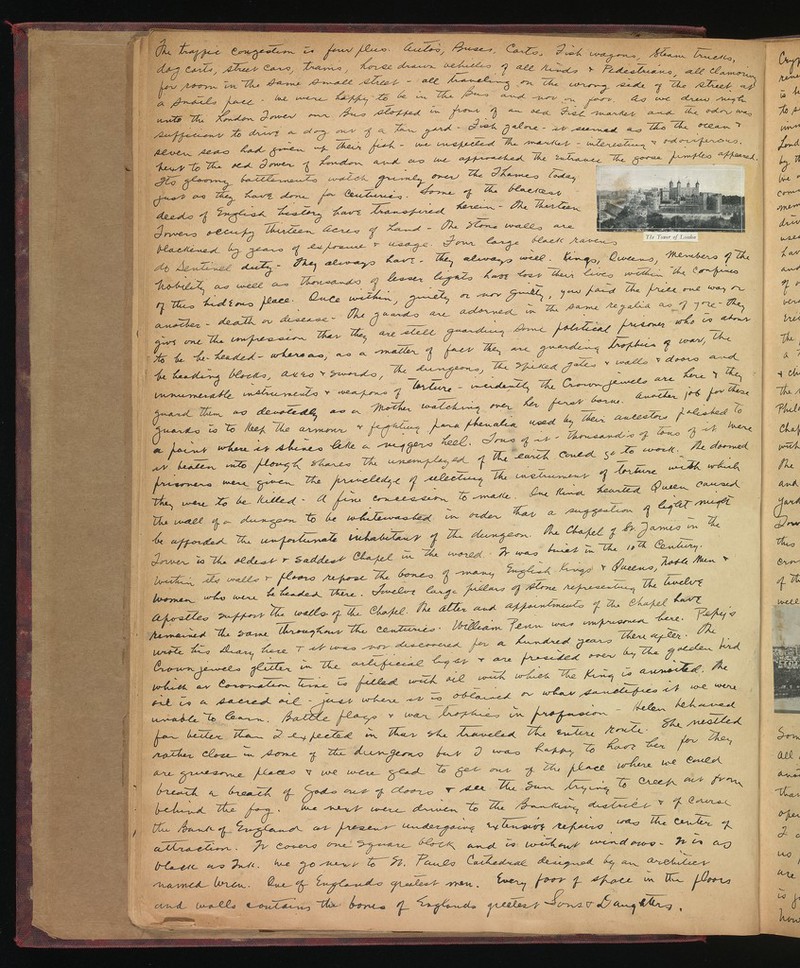 The traffic congestion is four plus. Autos, Buses, Carts, Fish wagons, Steam trucks,
dog carts, street cars, trams, horse drawn vehicles of all kinds & Pedestrians, all clamoring
for room in the same small street - all traveling on the wrong side of the street, at
a snails pace. We were happy to be in the bus and not on foot. As we drew nigh
unto the London Tower our bus stopped in front of an old Fish market and the odor was
sufficient to drive a dog out of a tan yard - Fish galore - it seemed as tho the ocean &
seven seas had given up their fish - we inspected the market - interesting & odoriferous.
Next to the old Tower of London and as we approached the entrance the goose pimples appeared.
Its gloomy battlements watch grimly over the Thames today
just as they have done for centuries. Some of the blackest
deeds of English history have transpired herein - The thirteen
Towers occupy thirteen acres of land - The stone walls are
The Tower of London
blackened by years of exposure & usage. Four large black ravens
do Sentinel duty - They always have - they always will. Kings, Queens, members of the
nobility as well as thousands of lesser lights have lost their lives within the confines
of this hideous place. Once within, guilty or not guilty, you paid the price one way or
another - death or disease - The guards are adorned in the same regalia as of yore - they
give one the impression that they are still guarding some political prisoner who is about
to be be-headed - whereas, as a matter of fact they are guarding trophies of war, the
be heading blocks, axes & swords, the dungeons, the spiked gates & walls & doors and
innumerable instruments & weapons of torture - incidently the Crown jewels are here & they
guard them as devotedly as a Mother watching over her first borne. Another job for these
guards is to keep the armour & fighting paraphenalia used by their ancestors polished to
a point where it shines like a niggers heel. Tons of it - thousands of tons of it were
it beaten into plough shares the unemployed of the earth could go to work. The doomed
prisoners were given the priveledge of selecting the instrument of torture with which
they were to be killed - a fine concession to make. One kind hearted Queen caused
the wall of a dungeon to be whitewashed in order that a suggestion of light might
be afforded the unfortunate inhabitant of the dungeon. The Chapel of St James in the
Tower is the oldest & saddest Chapel in the world. It was built in the 10th Century.
Within its walls & floors repose the bones of many English Kings & Queens, Noble Men &
Women who were be headed there. Twelve large pillars of stone representing the twelve
apostles support the walls of the Chapel. The alter and appointments of the chapel have
remained the same throughout the centuries. William Penn was imprisoned here. Pepy's
wrote his diary here & it was not discovered for a hundred years there after. The
Crown jewels glitter in the artificial light & are presided over by the golden bird
which at Coronation time is filled with oil with which the King is annoited. The
oil is a sacred oil - just where it is obtained or what sanctifies it we were
unable to learn. Battle flags & war trophies in profusion - Helen behaved
far better than I expected in that she traveled the entire route. She nestled
rather close in some of the dungeons but I was happy to have her for they
are gruesome places & we were glad to get out of the place where we could
breath a breath of Gods out of doors & see the Sun trying to creep out from
behind the fog. We next were driven to the Banking district & of course
the Bank of England at present undergoing extensive repairs was the center of
attraction. It covers one square block and is without windows - It is as
black as Ink. We go next to St. Pauls Cathedral designed by an architect
named Wren. One of Englands greatest men. Every foot of space in the floors
and walls contains the bones of Englands greatest Sons & Daughters.